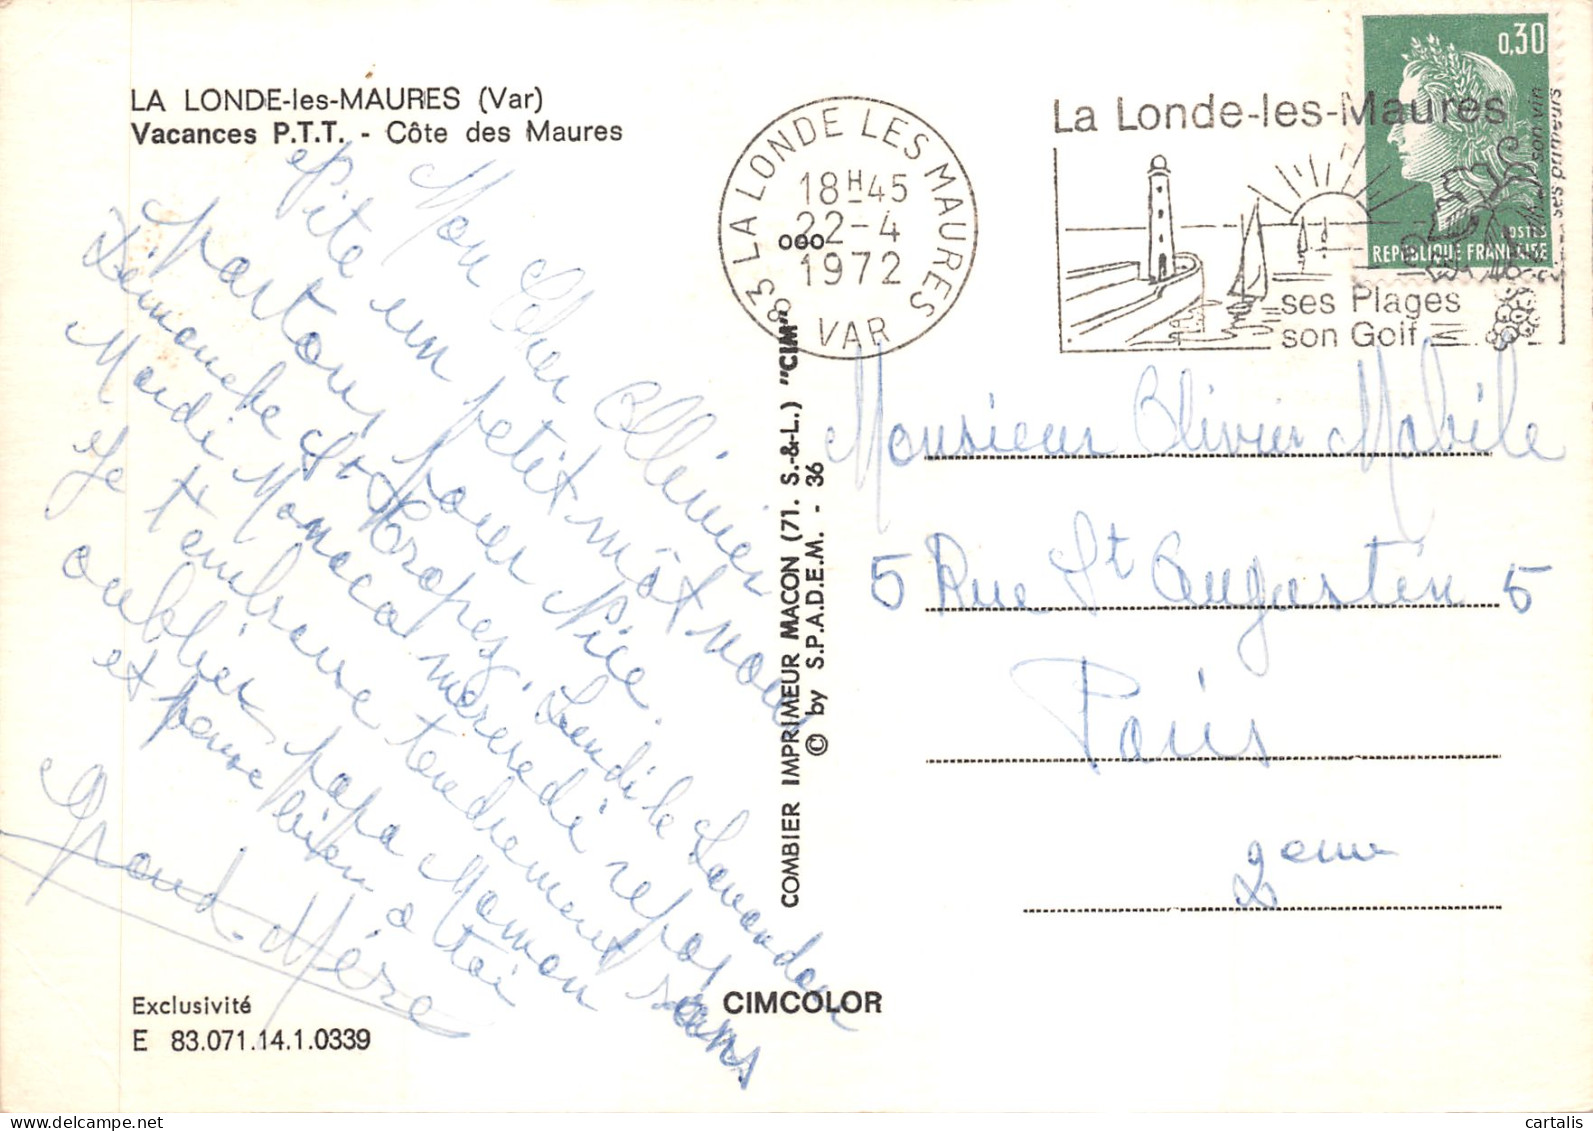 LA LONDE-les-MAURES (Var)
Vacances P.T.T. - Côte des Maures
Mon Cher Ollivier
Vite un petit môt nous
partons pour Nice
Dimanche St Tropez, Lundi le Lavandou
Mardi Monaco mercredi repos
Je t'embrasse tendrement sans
oublier papa Maman
et pense bien a toi
Grand-Mère
Exclusivité
E 83.071.14.1.0339
COMBIER IMPRIMEUR MACON (71. S.-&-L.) "CIM"
© by S.P.A.D.E.M. - 36
CIMCOLOR
83 LA LONDE LES MAURES
18H45
22-4
1972
VAR
ooo
La Londe-les-Maures
ses Plages
son Golf
son vin
ses primeurs
0,30
POSTES
REPUBLIQUE FRANÇAISE
Monsieur Olivier Mabile
5 Rue St Augustin 5
Paris
2eme
cartalis